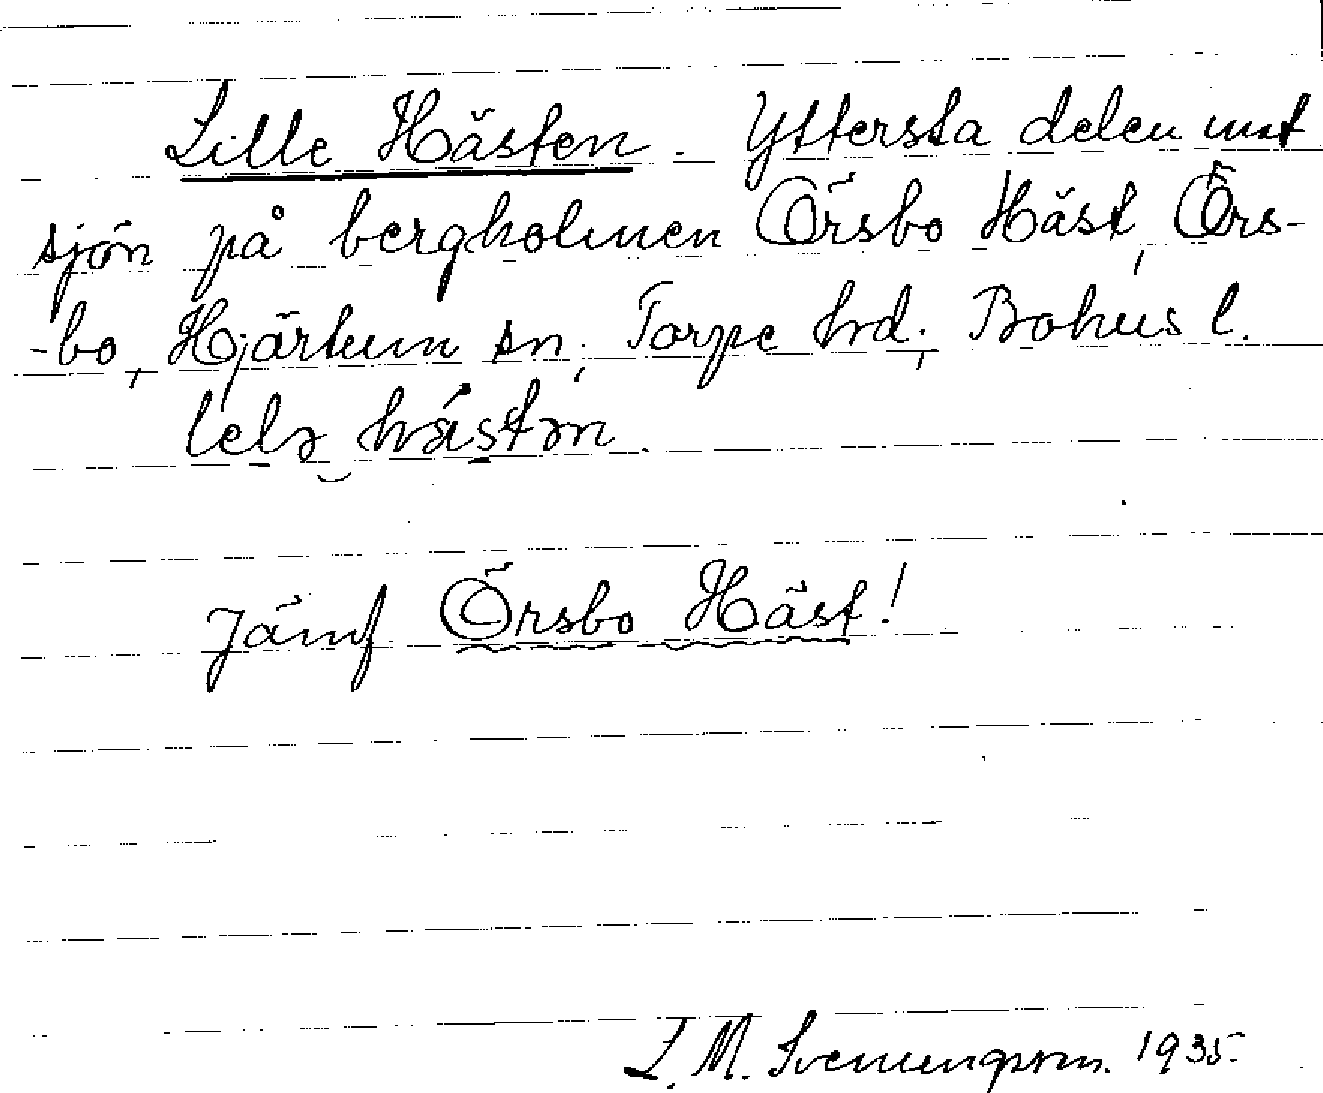 Lille Hästen. Yttersta delen mot
sjön på bergholmen Örsbo Häst, Örs-
-bo, Hjärtum sn, Torpe hd, Bohus l.
lelə hästən.
Jämf Örsbo Häst!
L. M. Svenungsson. 1935.